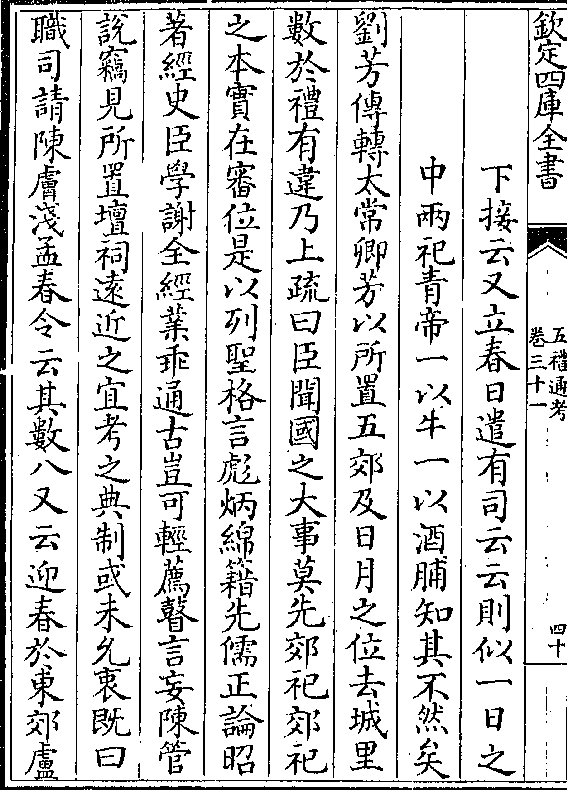 欽定四庫全書
五禮通考
卷三十一
四十
下接云又立春日遣有司云云則似一日之
中兩祀青帝一以牛一以酒脯知其不然矣
劉芳傳轉太常卿芳以所置五郊及日月之位去城里
數於禮有違乃上疏曰臣聞國之大事莫先郊祀郊祀
之本實在審位是以列聖格言彪炳綿籍先儒正論昭
著經史臣學謝全經業乖通古豈可輕薦瞽言妄陳管
說竊見所置壇祠遠近之宜考之典制或未允衷既曰
職司請陳膚淺孟春令云其數八又云迎春於東郊盧